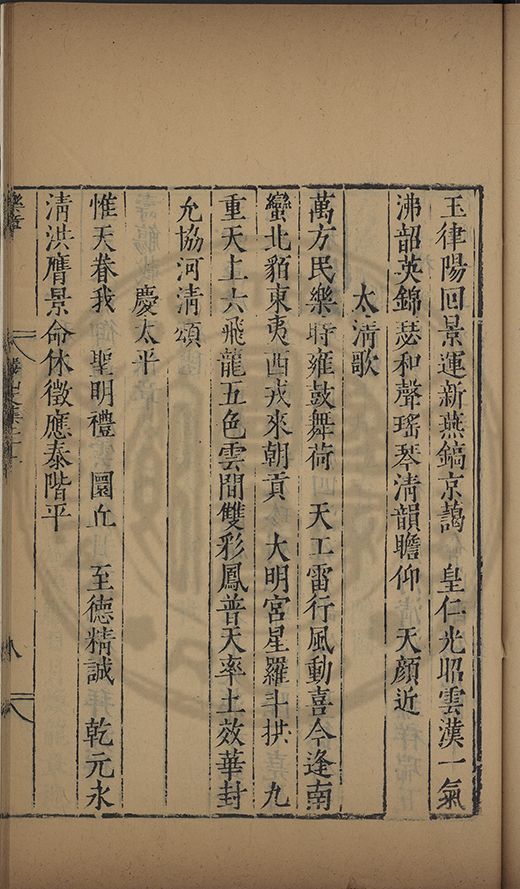 玉律陽回景運新燕鎬京藹　皇仁光昭雲漢一氣
沸韶英錦瑟和聲瑤琴淸韻瞻仰　天顏近
太淸歌
萬方民樂時雍鼓舞荷　天工雷行風動喜今逢南
蠻北貊東夷西戎來朝貢　大明宮星羅斗拱　九
重天上六飛龍五色雲間雙彩鳳普天率土效華封
允協河淸頌
慶太平
惟天眷我　聖明禮　圜丘　至德精誠　乾元永
淸洪膺景命休徵應泰階平
樂章